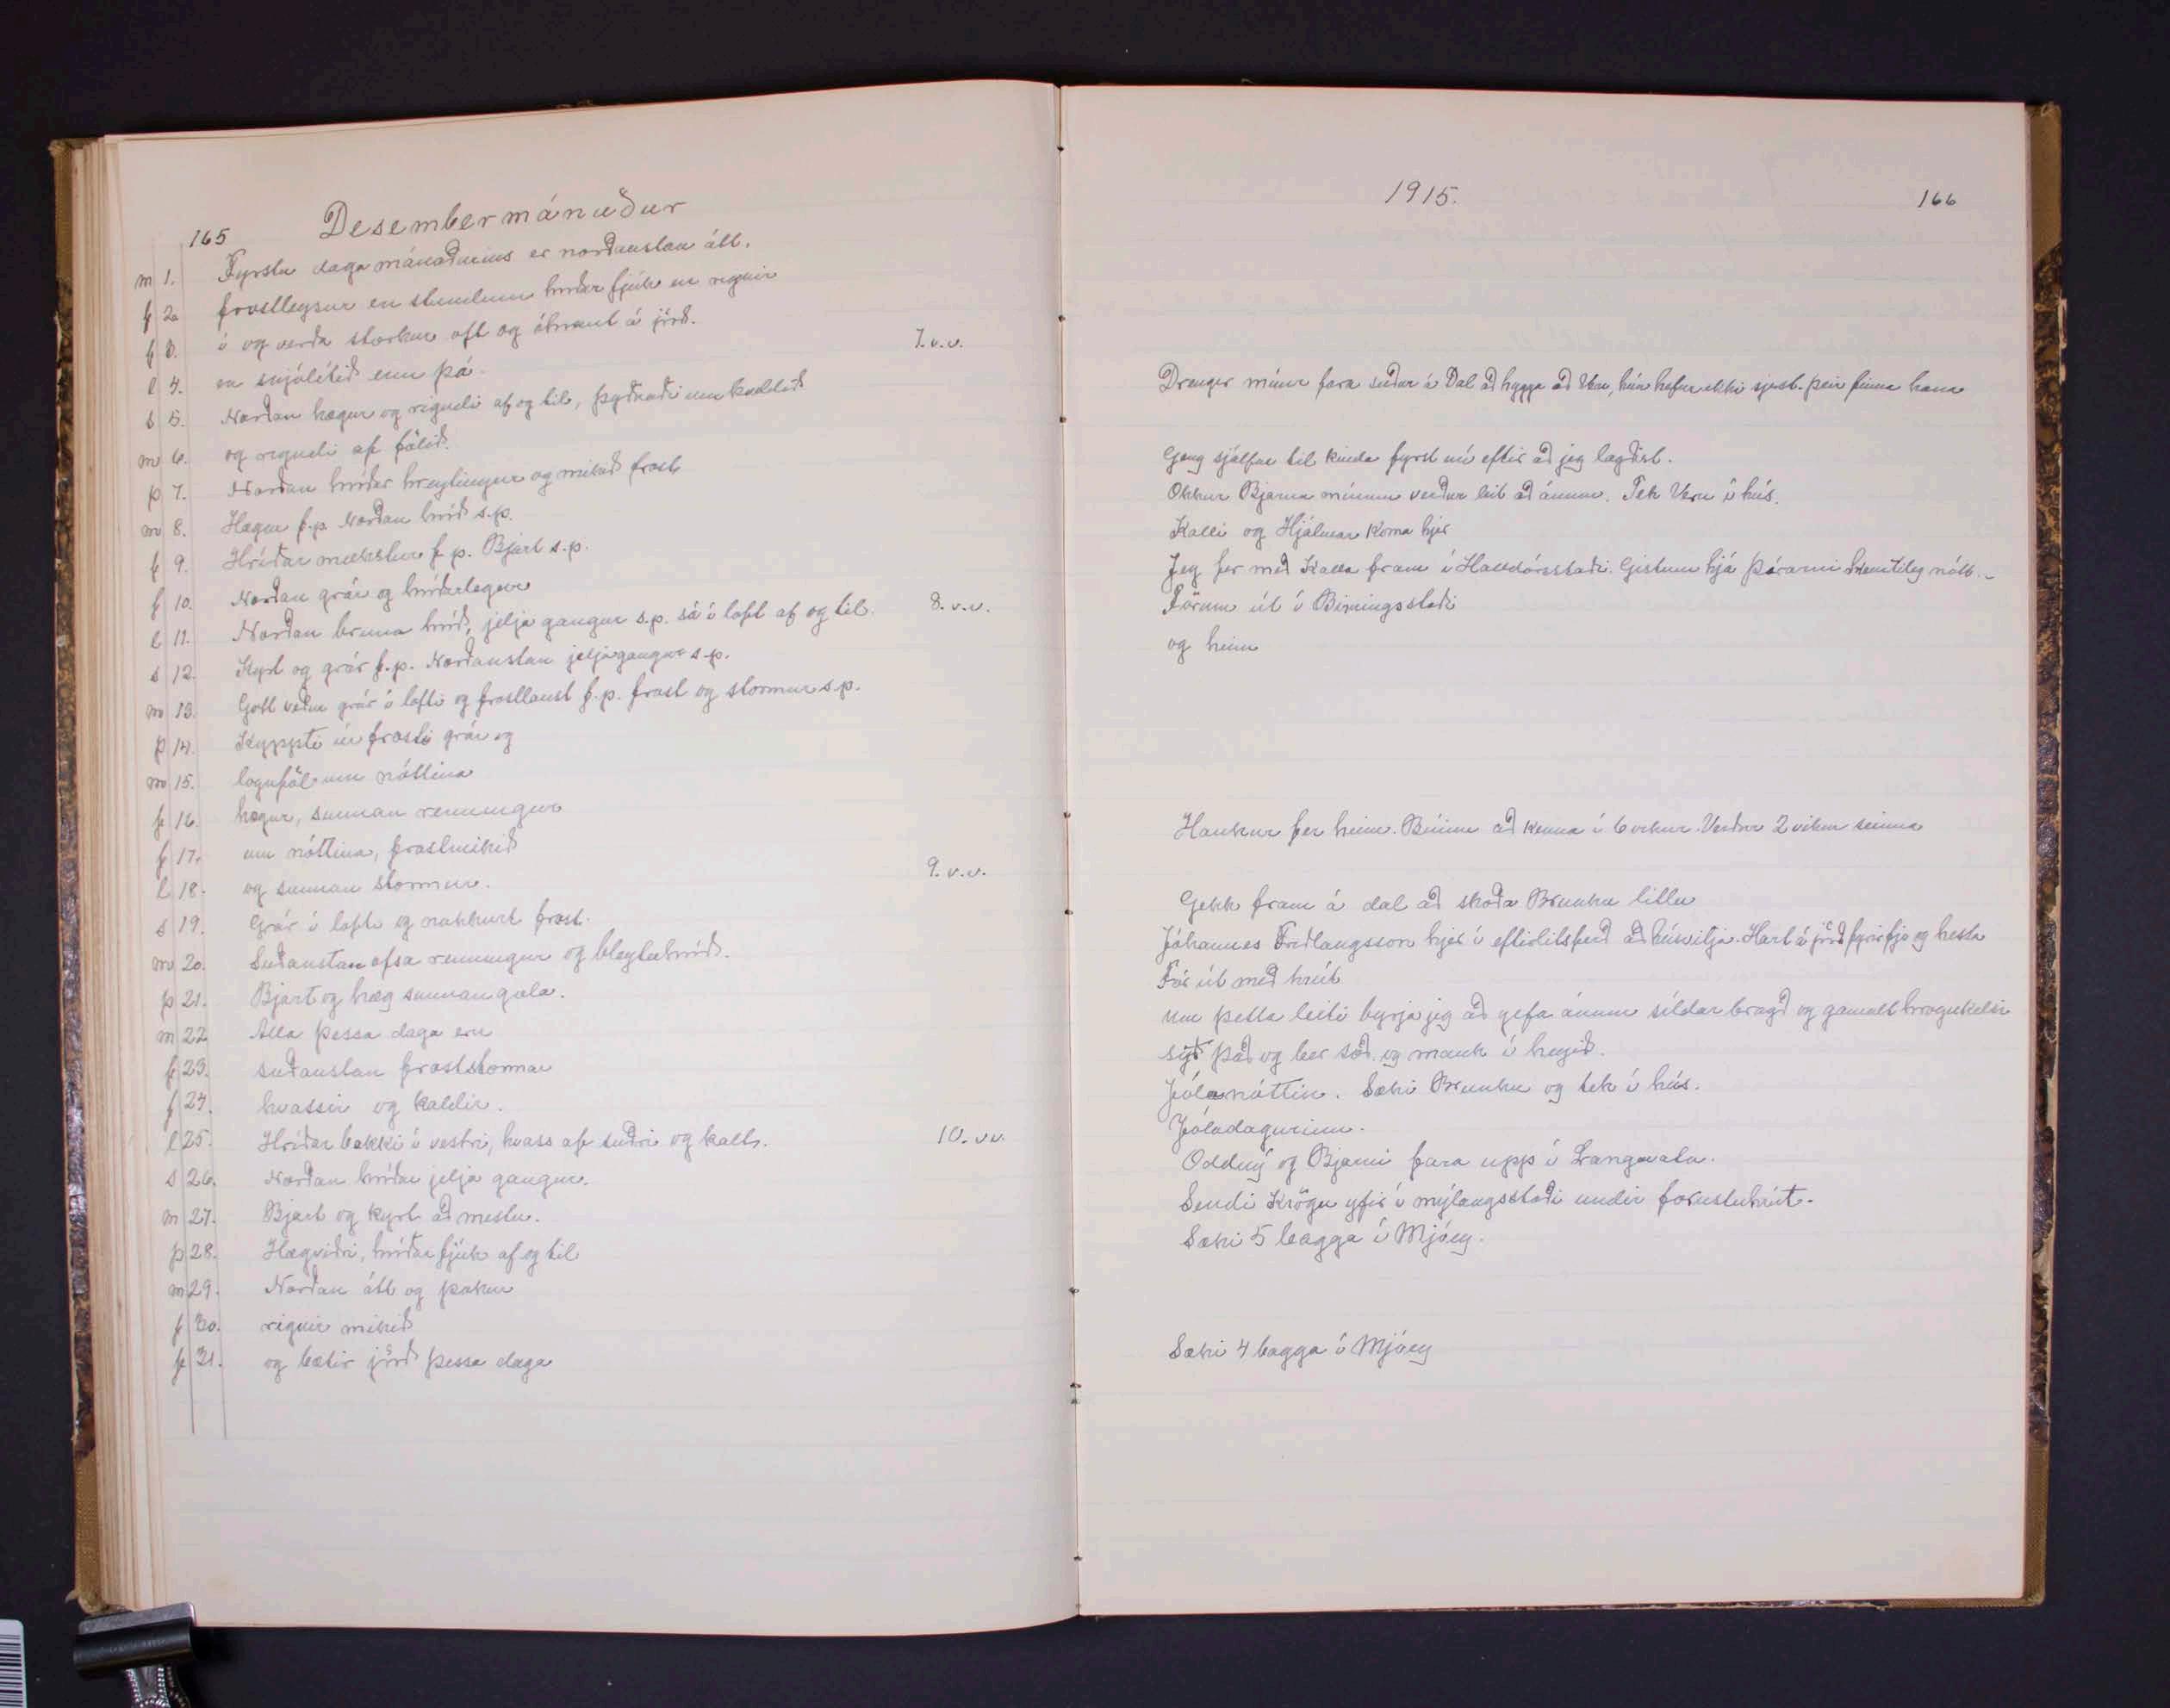 165 Desembermánuður
m 1. Fyrstu daga mánaðarins er norðaustan átt.
f 2. frostleysur en stundum hríðar fjúk en rignir
f 3. í og verða storkur oft og óhraust á jörð.
l 4. en snjólítið enn þá. 7. v.v.
s 5. Norðan hægur og rigndi af og til, þyðnaði um kveldið
m 6. og rigndi af fölið.
þ 7. Norðan hríðar hreytingur og mikið frost
m 8. Hægur f.p. Norðan hríð s.p.
f 9. Hríðar mukkur f.p. Bjart s.p.
f 10. Norðan grár og hríðarlegur
l 11. Norðan bruna hríð, jelja gangur s.p. sá í loft af og til. 8. v.v.
s 12. Kyrt og grár f.p. Norðaustan jeljagangur s.p.
m 13. Gott veður grár í lofti og frostlaust f.p. frost og stormur s.p.
þ 14. Kyppti úr frosti grár og
m 15. lognföl um nóttina
f 16. hægur, sunnan renningur
f 17. um nóttina, frostmikið
l 18. og sunnan stormur. 9. v.v.
s 19. Grár í lofti og nokkurt frost.
m 20. Suðaustan ofsa renningur og bleytuhríð.
þ 21. Bjart og hæg sunnangola.
m 22. Alla þessa daga eru
f 23. suðaustan froststormar
f 24. hvassir og kaldir.
l 25. Hríðar bakki í vestri, hvass af suðri og kalt. 10. v.v.
s 26. Norðan hríðar jelja gangur.
m 27. Bjart og kyrt að mestu.
þ 28. Hægviðri, hríðar fjúk af og til
m 29. Norðan átt og þokur
f 30. rignir mikið
f 31. og bætir jörð þessa daga
1915. 166
Drengir mínir fara suður á Dal að hygga að Veru, hún hefur ekki sjest. þeir finna hana
Geng sjálfur til kinda fyrst nú eftir að jeg lagðist.
Okkur Bjarna mínum verður leit að ánum. Tek Veru í hús.
Kalli og Hjálmar koma hjer
Jeg fer með Kalla fram í Halldórsstaði. Gistum hjá Þórarni skemtileg nótt. -
Förum út í Birningsstaði
og heim
Haukur fer heim. Búinn að kenna í 6 vikur. Verður 2 vikur seinna
Gekk fram á dal að skoða Brunku litlu
Jóhannes Friðlaugsson hjer í eftirlitsferð að húsvitja. Hart á jörð fyrir fje og hesta
Fór út með hrút
um þetta leiti byrja jeg að gefa ánum síldar bragð og gamalt hrognkelsi
sýð það og ber soð og mauk í heyið.
Jólanóttin. Sæki Brunku og tek í hús.
Jóladagurinn.
Oddný og Bjarni fara upp í Langavatn.
Sendi Krögu yfir í mýlaugsstaði undir forustuhrút.
Sæki 5 bagga í Mjóey.
Sæki 4 bagga í Mjóey